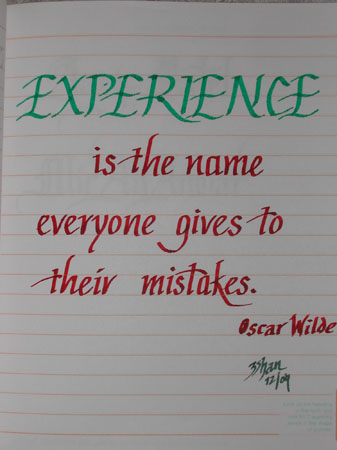 EXPERIENCE
is the name
everyone gives to
their mistakes.
Oscar Wilde
zshan
12/09